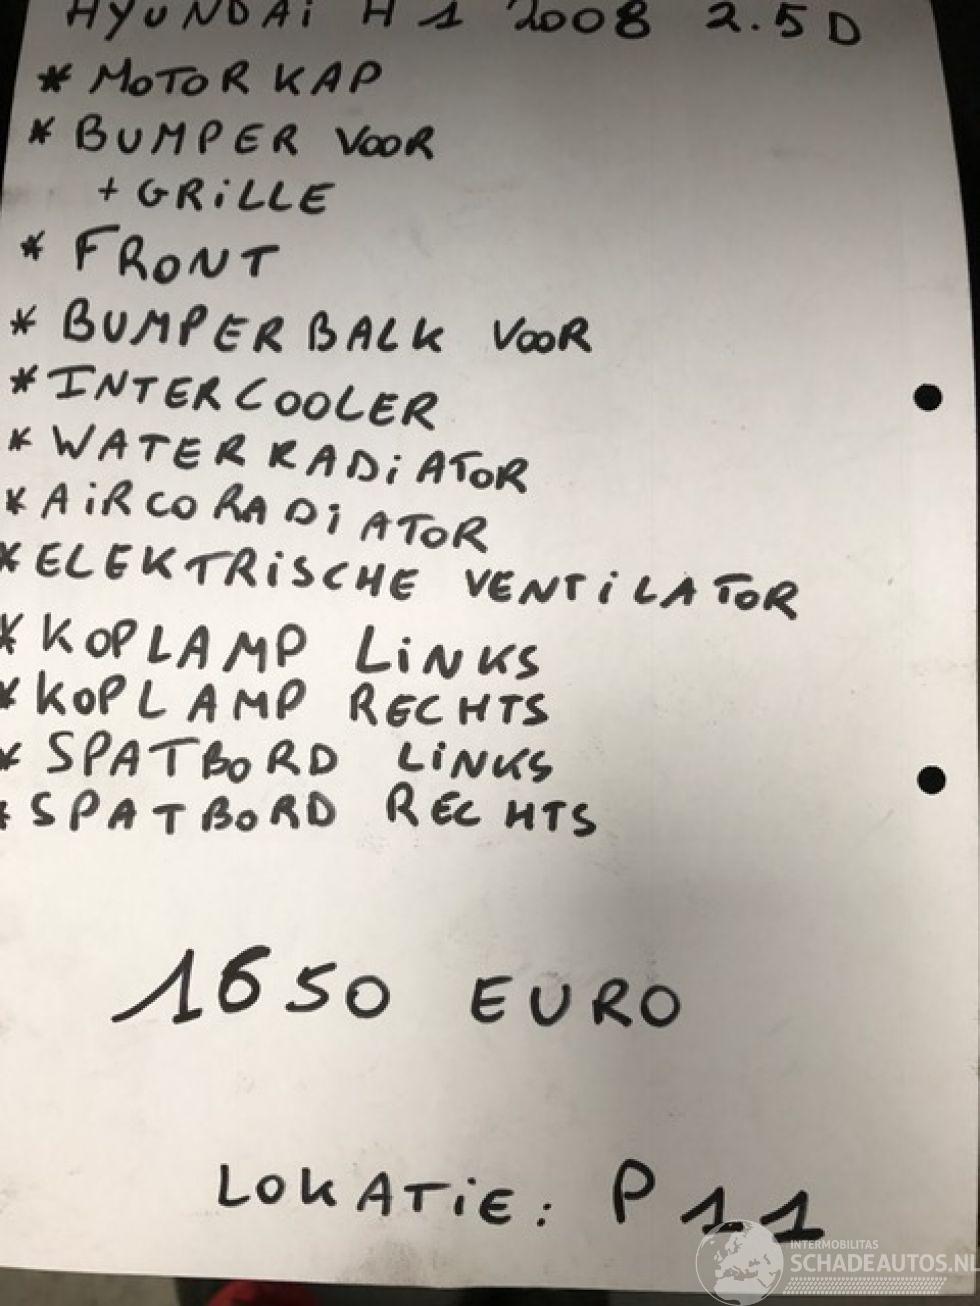 HYUNDAi H1 2008 2.5D
* MOTORKAP
* BUMPER VOOR
+ GRiLLE
* FRONT
* BUMPERBALK VOOR
* INTERCOOLER
* WATERRADiATOR
* AiRCORADiATOR
* ELEKTRiSCHE VENTiLATOR
* KOPLAMP LiNKS
* KOPLAMP RECHTS
* SPATBORD LiNKS
* SPATBORD RECHTS
1650 EURO
LOKATiE: P11
INTERMOBILITAS
SCHADEAUTOS.NL